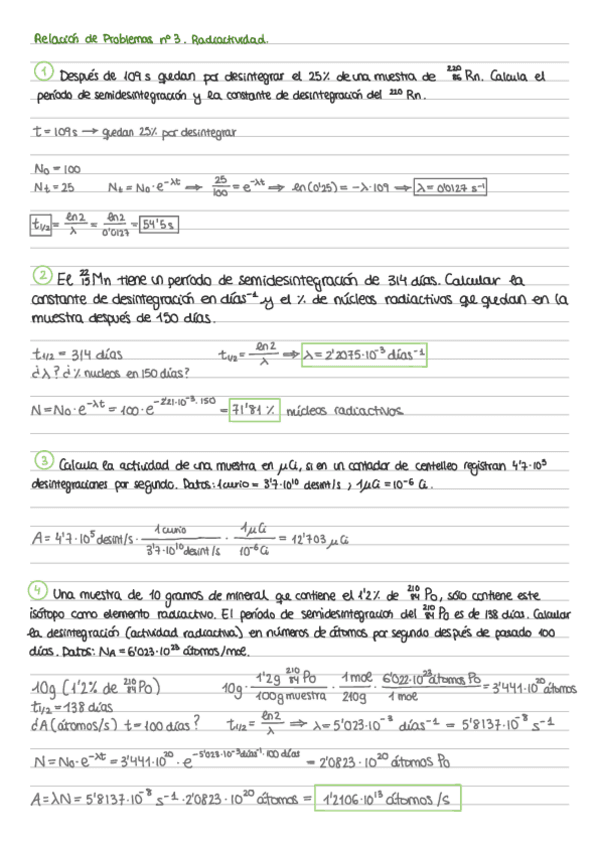 Relación de Problemas nº3. Radiactividad.
① Después de 109 s quedan por desintegrar el 25% de una muestra de ²²⁰₈₆Rn. Calcula el
período de semidesintegración y la constante de desintegración del ²²⁰Rn.
t = 109s → quedan 25% por desintegrar
N₀ = 100
Nt = 25 Nt = N₀·e^-λt ⇒ 25/100 = e^-λt ⇒ ln(0'25) = -λ·109 ⇒ λ = 0'0127 s⁻¹
t1/2 = ln2/λ = ln2/0'0127 = 54'5s
② El ²²₁₃Mn tiene un período de semidesintegración de 314 días. Calcular la
constante de desintegración en días⁻¹ y el % de núcleos radiactivos que quedan en la
muestra después de 150 días.
t1/2 = 314 días t1/2 = ln2/λ ⇒ λ = 2'2075·10⁻³ días⁻¹
¿λ? ¿% nucleos en 150 días?
N = N₀·e^-λt = 100·e^-2'21·10⁻³·150 = 71'81 % núcleos radiactivos
③ Calcula la actividad de una muestra en μCi, si en un contador de centelleo registran 4'7·10⁵
desintegraciones por segundo. Datos: 1 curio = 3'7·10¹⁰ desint/s ; 1μCi = 10⁻⁶ Ci.
A = 4'7·10⁵ desint/s · 1 curio/3'7·10¹⁰ desint/s · 1μCi/10⁻⁶ Ci = 12'703 μCi
④ Una muestra de 10 gramos de mineral que contiene el 1'2% de ²¹⁰₈₄Po, sólo contiene este
isótopo como elemento radiactivo. El período de semidesintegracion del ²¹⁰₈₄Po es de 138 días. Calcular
la desintegración (actividad radiactiva) en números de átomos por segundo después de pasado 100
días. Datos: NA = 6'023·10²³ átomos/mol.
10g (1'2% de ²¹⁰₈₄Po) 10g · 1'2g ²¹⁰₈₄Po/100g muestra · 1 mol/210g · 6'022·10²³ átomos Po/1 mol = 3'441·10²⁰ átomos
t1/2 = 138 días
¿A (átomos/s) t = 100 días? t1/2 = ln2/λ ⇒ λ = 5'023·10⁻³ días⁻¹ = 5'8137·10⁻⁸ s⁻¹
N = N₀·e^-λt = 3'441·10²⁰ · e^-5'023·10⁻³ días⁻¹·100 días = 2'0823·10²⁰ átomos Po
A = λN = 5'8137·10⁻⁸ s⁻¹ · 2'0823·10²⁰ átomos = 1'2106·10¹³ átomos/s